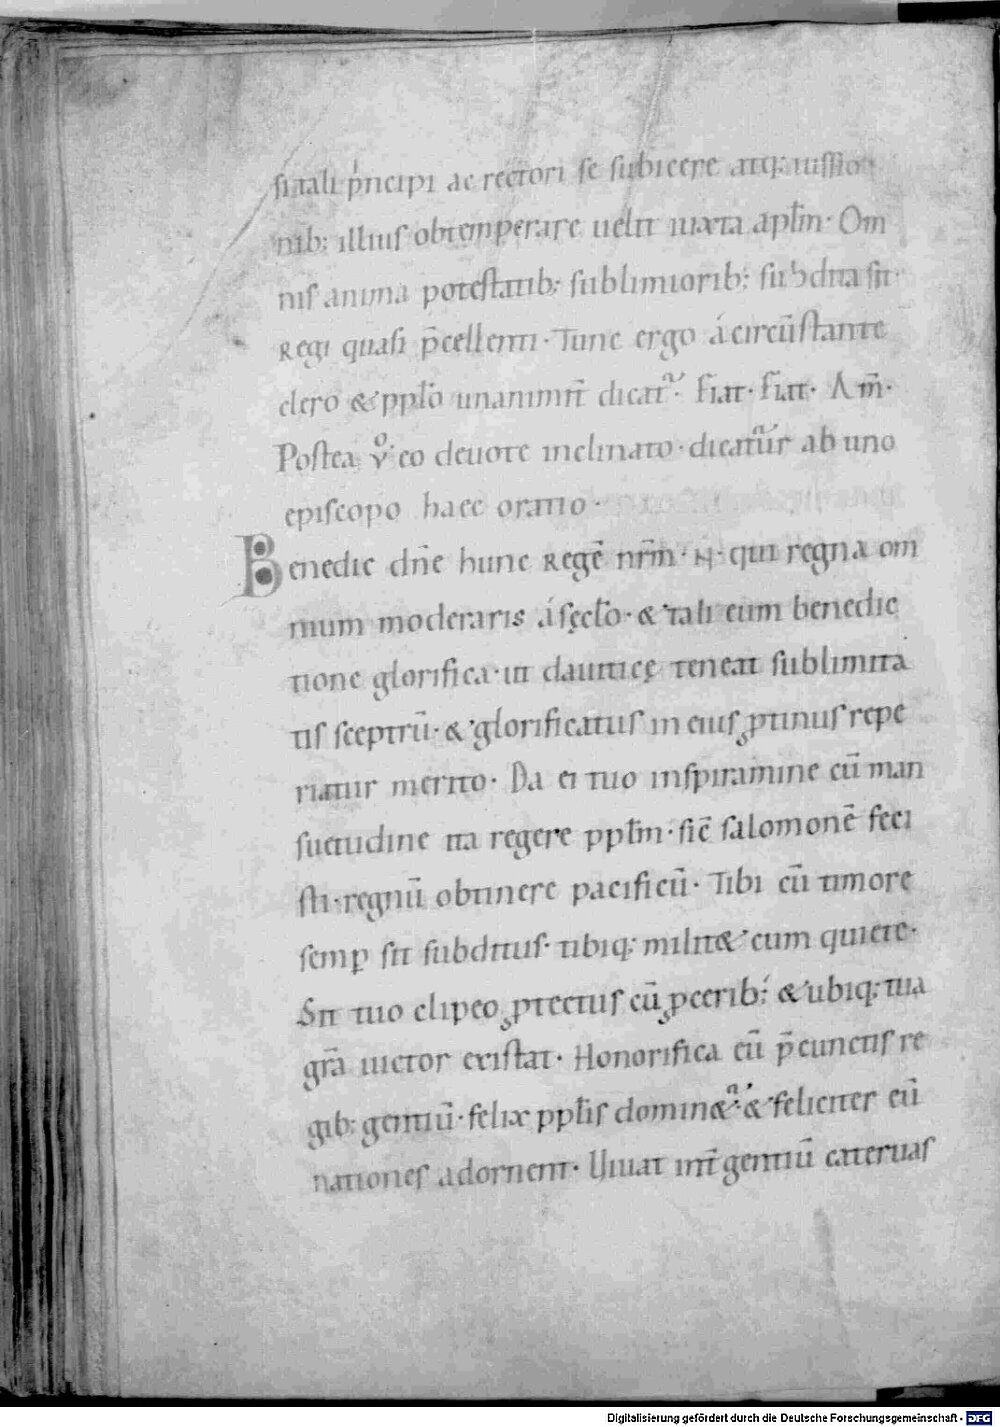 si tali p̍ncipi ac rectori se subicere atq; iussio
nib; illius obtemperare uelit iuxta apl̄m · Om
nis anima potestatib; sublimiorib; subdita sit ·
Regi quasi p̄cellenti · Tunc ergo á circūstante
clero & pp̄lo unanimit̄ dicat᷑ · Fiat · fiat · Am̄ ·
Postea v̊ eo deuote inclinato · dicat᷑ur ab uno
episcopo haec oratio ·
Benedic dn̄e hunc Regē nr̄m · N̄ · qui regna om
nium moderaris á sęcl̄o · & tali eum benedic
tione glorifica · ut dauiticę teneat sublimita
tis sceptrū · & glorificatus in eius ꝓtinus repe
riatur merito · Da ei tuo inspiramine cū man
suetudine ita regere ppl̄m · sic̄ salomonē feci
sti · regnū obtinere pacificū · Tibi cū timore
semꝑ sit subditus · tibiq; milit& cum quiete ·
Sit tuo clipeo ꝓtectus cū ꝓcerib; & ubiq; tua
gr̄a uictor existat · Honorifica eū p̄ cunctis re
gib; gentiū · felix ppl̄is domin&᷑ · & feliciter eū
nationes adornent · Uiuat int̄ gentiū cateruas
Digitalisierung gefördert durch die Deutsche Forschungsgemeinschaft - DFG